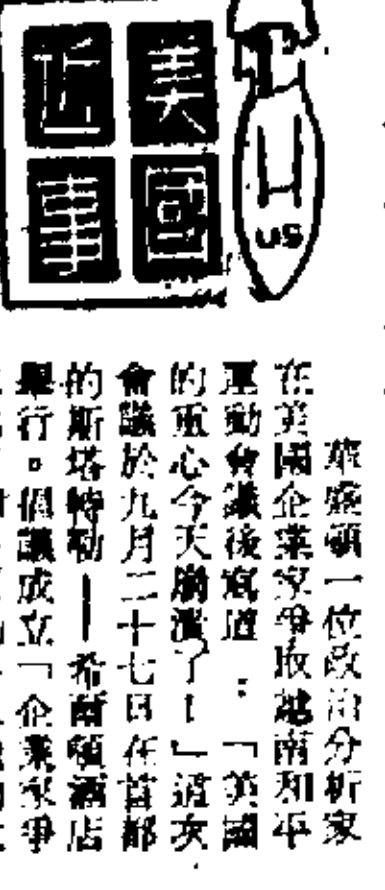 美國
近事
US
華盛頓一位政治分析家
在美國企業家爭取越南和平
運動會議後寫道：「美國
的重心今天崩潰了！」這次
會議於九月二十七日在首都
的斯塔轉勒—希爾頓酒店
舉行。倡議成立「企業家爭